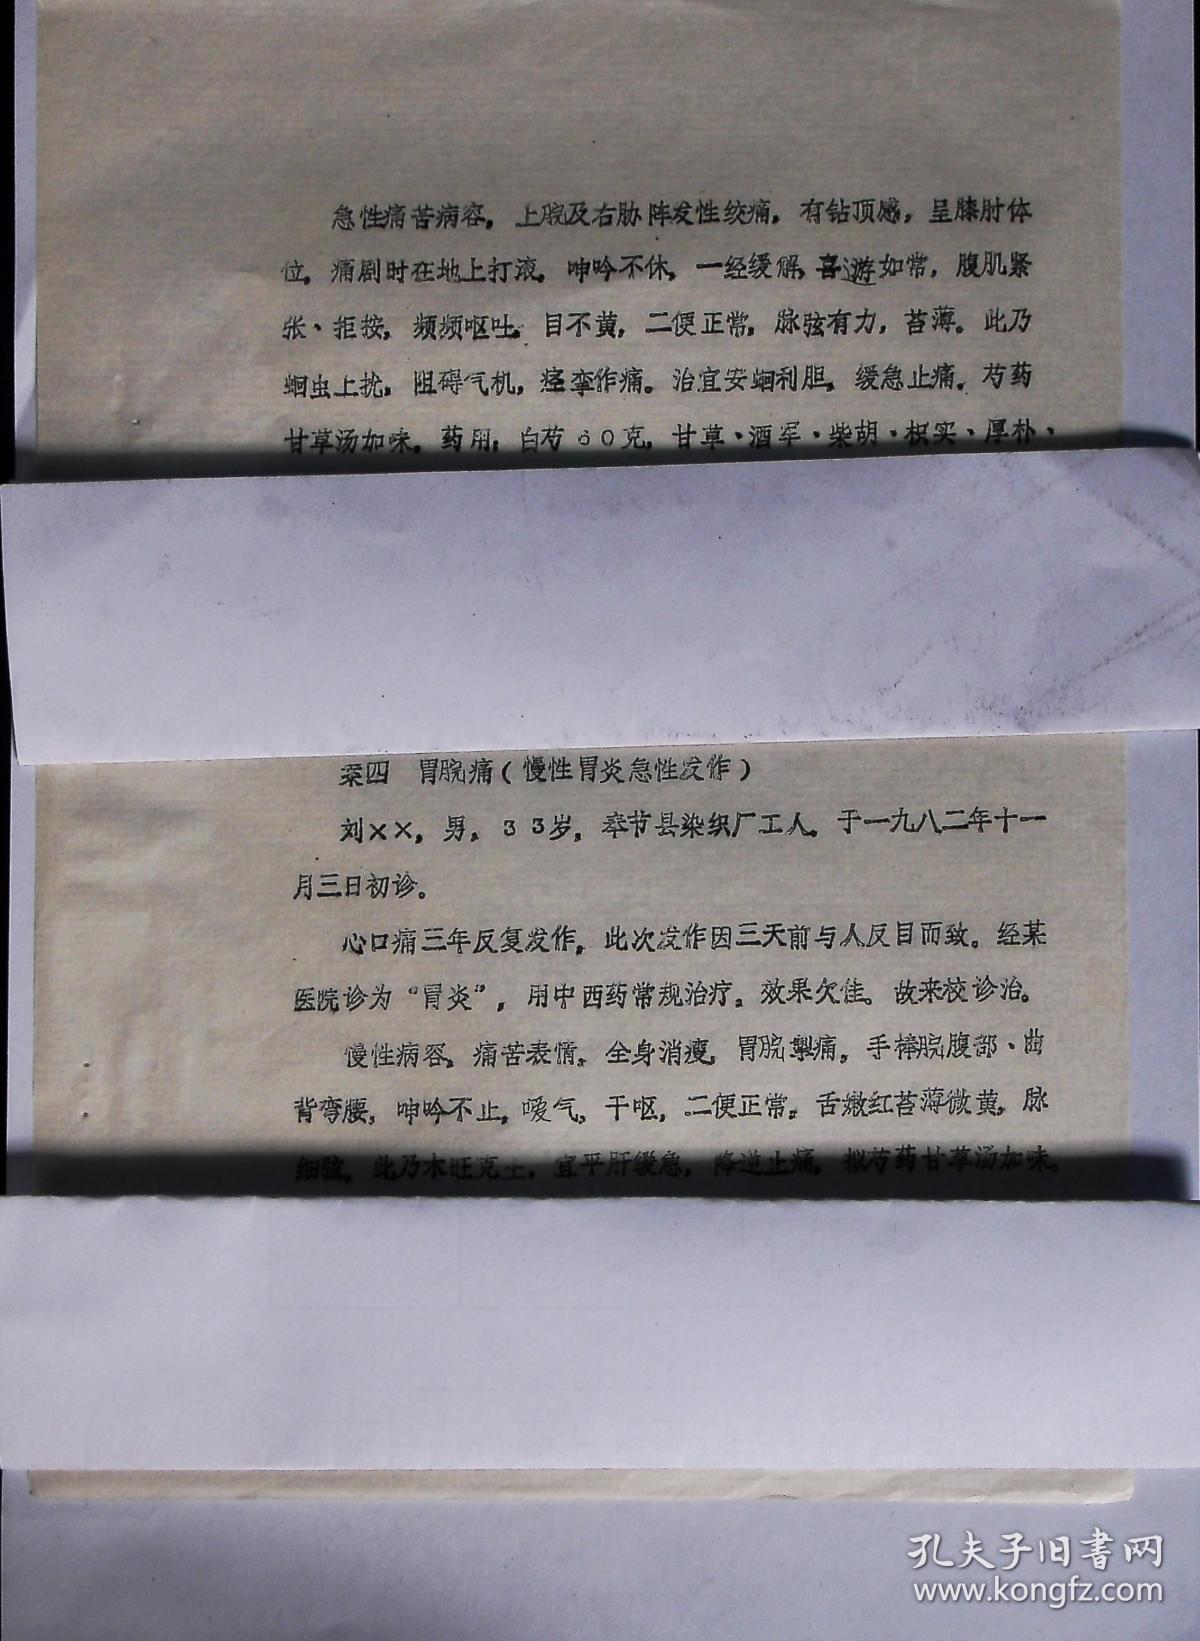 急性痛苦病容，上脘及右胁阵发性绞痛，有钻顶感，呈膝肘体
位，痛剧时在地上打滚，呻吟不休，一经缓解，喜游如常，腹肌紧
张、拒按，频频呕吐，目不黄，二便正常，脉弦有力，苔薄。此乃
蛔虫上扰，阻碍气机，痉挛作痛。治宜安蛔利胆，缓急止痛，芍药
甘草汤加味。药用：白芍60克，甘草、酒军、柴胡、枳实、厚朴、
案四　胃脘痛（慢性胃炎急性发作）
刘××，男，33岁，奉节县染织厂工人。于一九八二年十一
月三日初诊。
心口痛三年反复发作，此次发作因三天前与人反目而致。经某
医院诊为“胃炎”，用中西药常规治疗，效果欠佳。故来校诊治。
慢性病容，痛苦表情，全身消瘦，胃脘掣痛，手捧脘腹部、曲
背弯腰，呻吟不止，嗳气，干呕，二便正常，舌嫩红苔薄微黄，脉
细弦。此乃木旺克土，宜平肝缓急，降逆止痛，拟芍药甘草汤加味。
孔夫子旧書网
www.kongfz.com